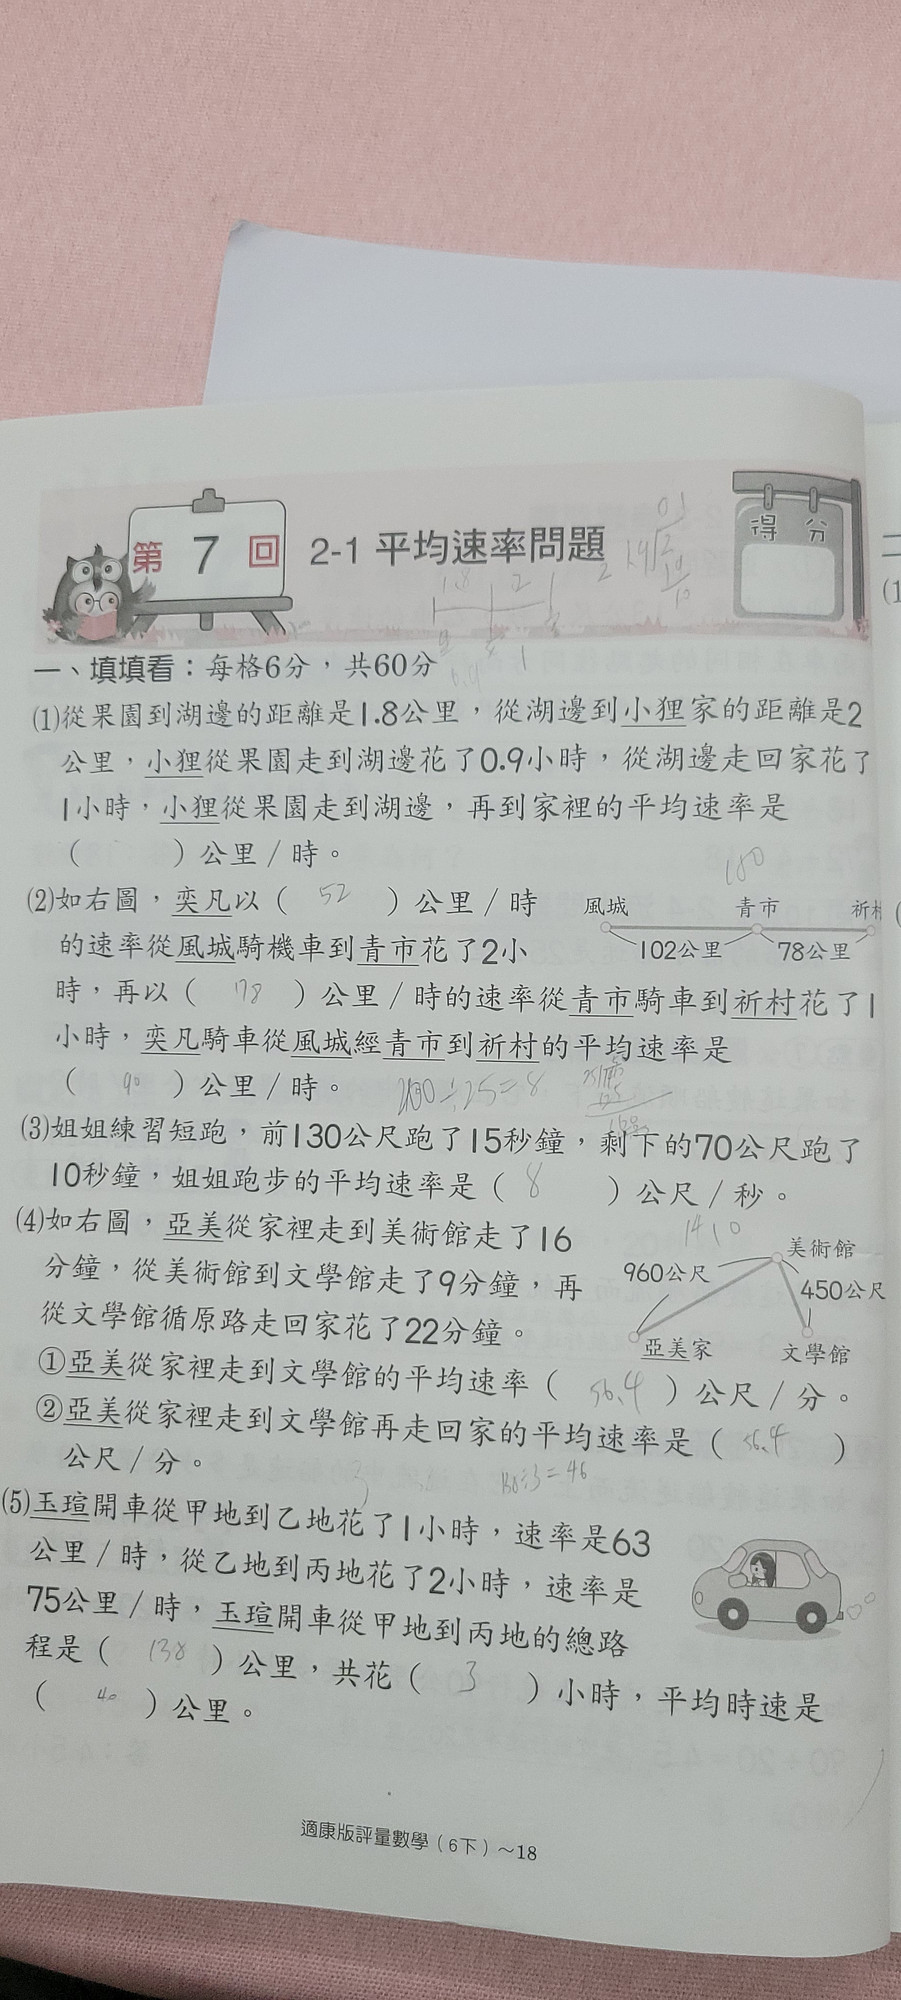 第 7 回 2-1 平均速率問題 得分
一、填填看：每格6分，共60分
⑴從果園到湖邊的距離是1.8公里，從湖邊到小狸家的距離是2
公里，小狸從果園走到湖邊花了0.9小時，從湖邊走回家花了
1小時，小狸從果園走到湖邊，再到家裡的平均速率是
（ ）公里／時。
180
⑵如右圖，奕凡以（ 52 ）公里／時
的速率從風城騎機車到青市花了2小
時，再以（ 178 ）公里／時的速率從青市騎車到祈村花了1
小時，奕凡騎車從風城經青市到祈村的平均速率是
（ 90 ）公里／時。
風城 青市
102公里 78公里
÷25=8
⑶姐姐練習短跑，前130公尺跑了15秒鐘，剩下的70公尺跑了
10秒鐘，姐姐跑步的平均速率是（ 8 ）公尺／秒。
⑷如右圖，亞美從家裡走到美術館走了16
分鐘，從美術館到文學館走了9分鐘，再
從文學館循原路走回家花了22分鐘。
1410
美術館
960公尺
450公尺
亞美家 文學館
①亞美從家裡走到文學館的平均速率（ 56.4 ）公尺／分。
②亞美從家裡走到文學館再走回家的平均速率是（ 56.4 ）
公尺／分。
3
÷3=46
⑸玉瑄開車從甲地到乙地花了1小時，速率是63
公里／時，從乙地到丙地花了2小時，速率是
75公里／時，玉瑄開車從甲地到丙地的總路
程是（ 138 ）公里，共花（ 3 ）小時，平均時速是
（ 40 ）公里。
適康版評量數學（6下）～18